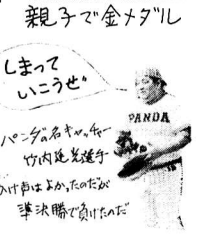 親子で金メダル
しまって
いこうぜ
PANDA
パンダの名キャッチャー
竹内 選手
け声はよかったのだが
準決勝で負けたのだ